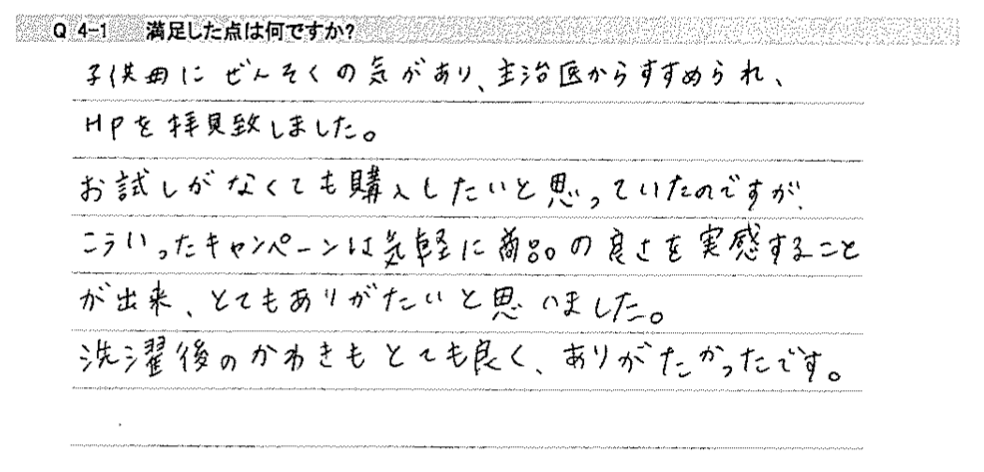 Q 4-1 満足した点は何ですか?
子供用にぜんそくの気があり、主治医からすすめられ、
HPを拝見致しました。
お試しがなくても購入したいと思っていたのですが、
こういったキャンペーンは気軽に商品の良さを実感すること
が出来、とてもありがたいと思いました。
洗濯後のかわきもとても良く、ありがたかったです。